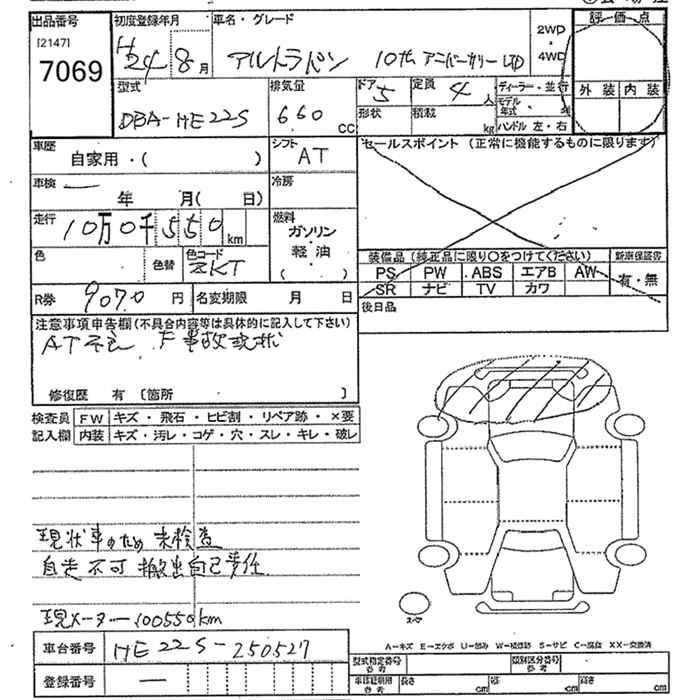 出品番号 初度登録年月 車名・グレード 2WD・4WD 評価点
[2147]
7069 H24 8月 アルトラパン 10th アニバーサリーLTD
型式 排気量 ドア 定員 ディーラー・並行 外装 内装
DBA-HE22S 660 CC 5 4人 モデル年式
形状 積載 kg ハンドル 左・右
車歴 シフト セールスポイント (正常に機能するものに限ります)
自家用・( ) AT
車検 — 年 月( 日) 冷房
走行 10万0千550km 燃料
ガソリン・軽油・( )
色 色替 色コード ZKT
装備品 (純正品に限り○をつけてください) 新車保証書
PS PW ABS エアB AW 有・無
SR ナビ TV カワ
R券 9070円 名変期限 月 日 後日品
注意事項申告欄(不具合内容等は具体的に記入して下さい)
AT不良 F事故現状
修復歴 有〔箇所 〕
検査員 FW キズ・飛石・ヒビ割・リペア跡・×要
記入欄 内装 キズ・汚レ・コゲ・穴・スレ・キレ・破レ
現状車のため未検査
自走不可 搬出自己責任
現メーター100550km
スペア
A-キズ E-エクボ U-凹み W-補修跡 S-サビ C-腐食 XX-交換済
車台番号 HE22S-250527
型式指定番号 参考 類別区分番号 参考
登録番号 —
車検証明用 参考 長さ cm 幅 cm 高さ cm